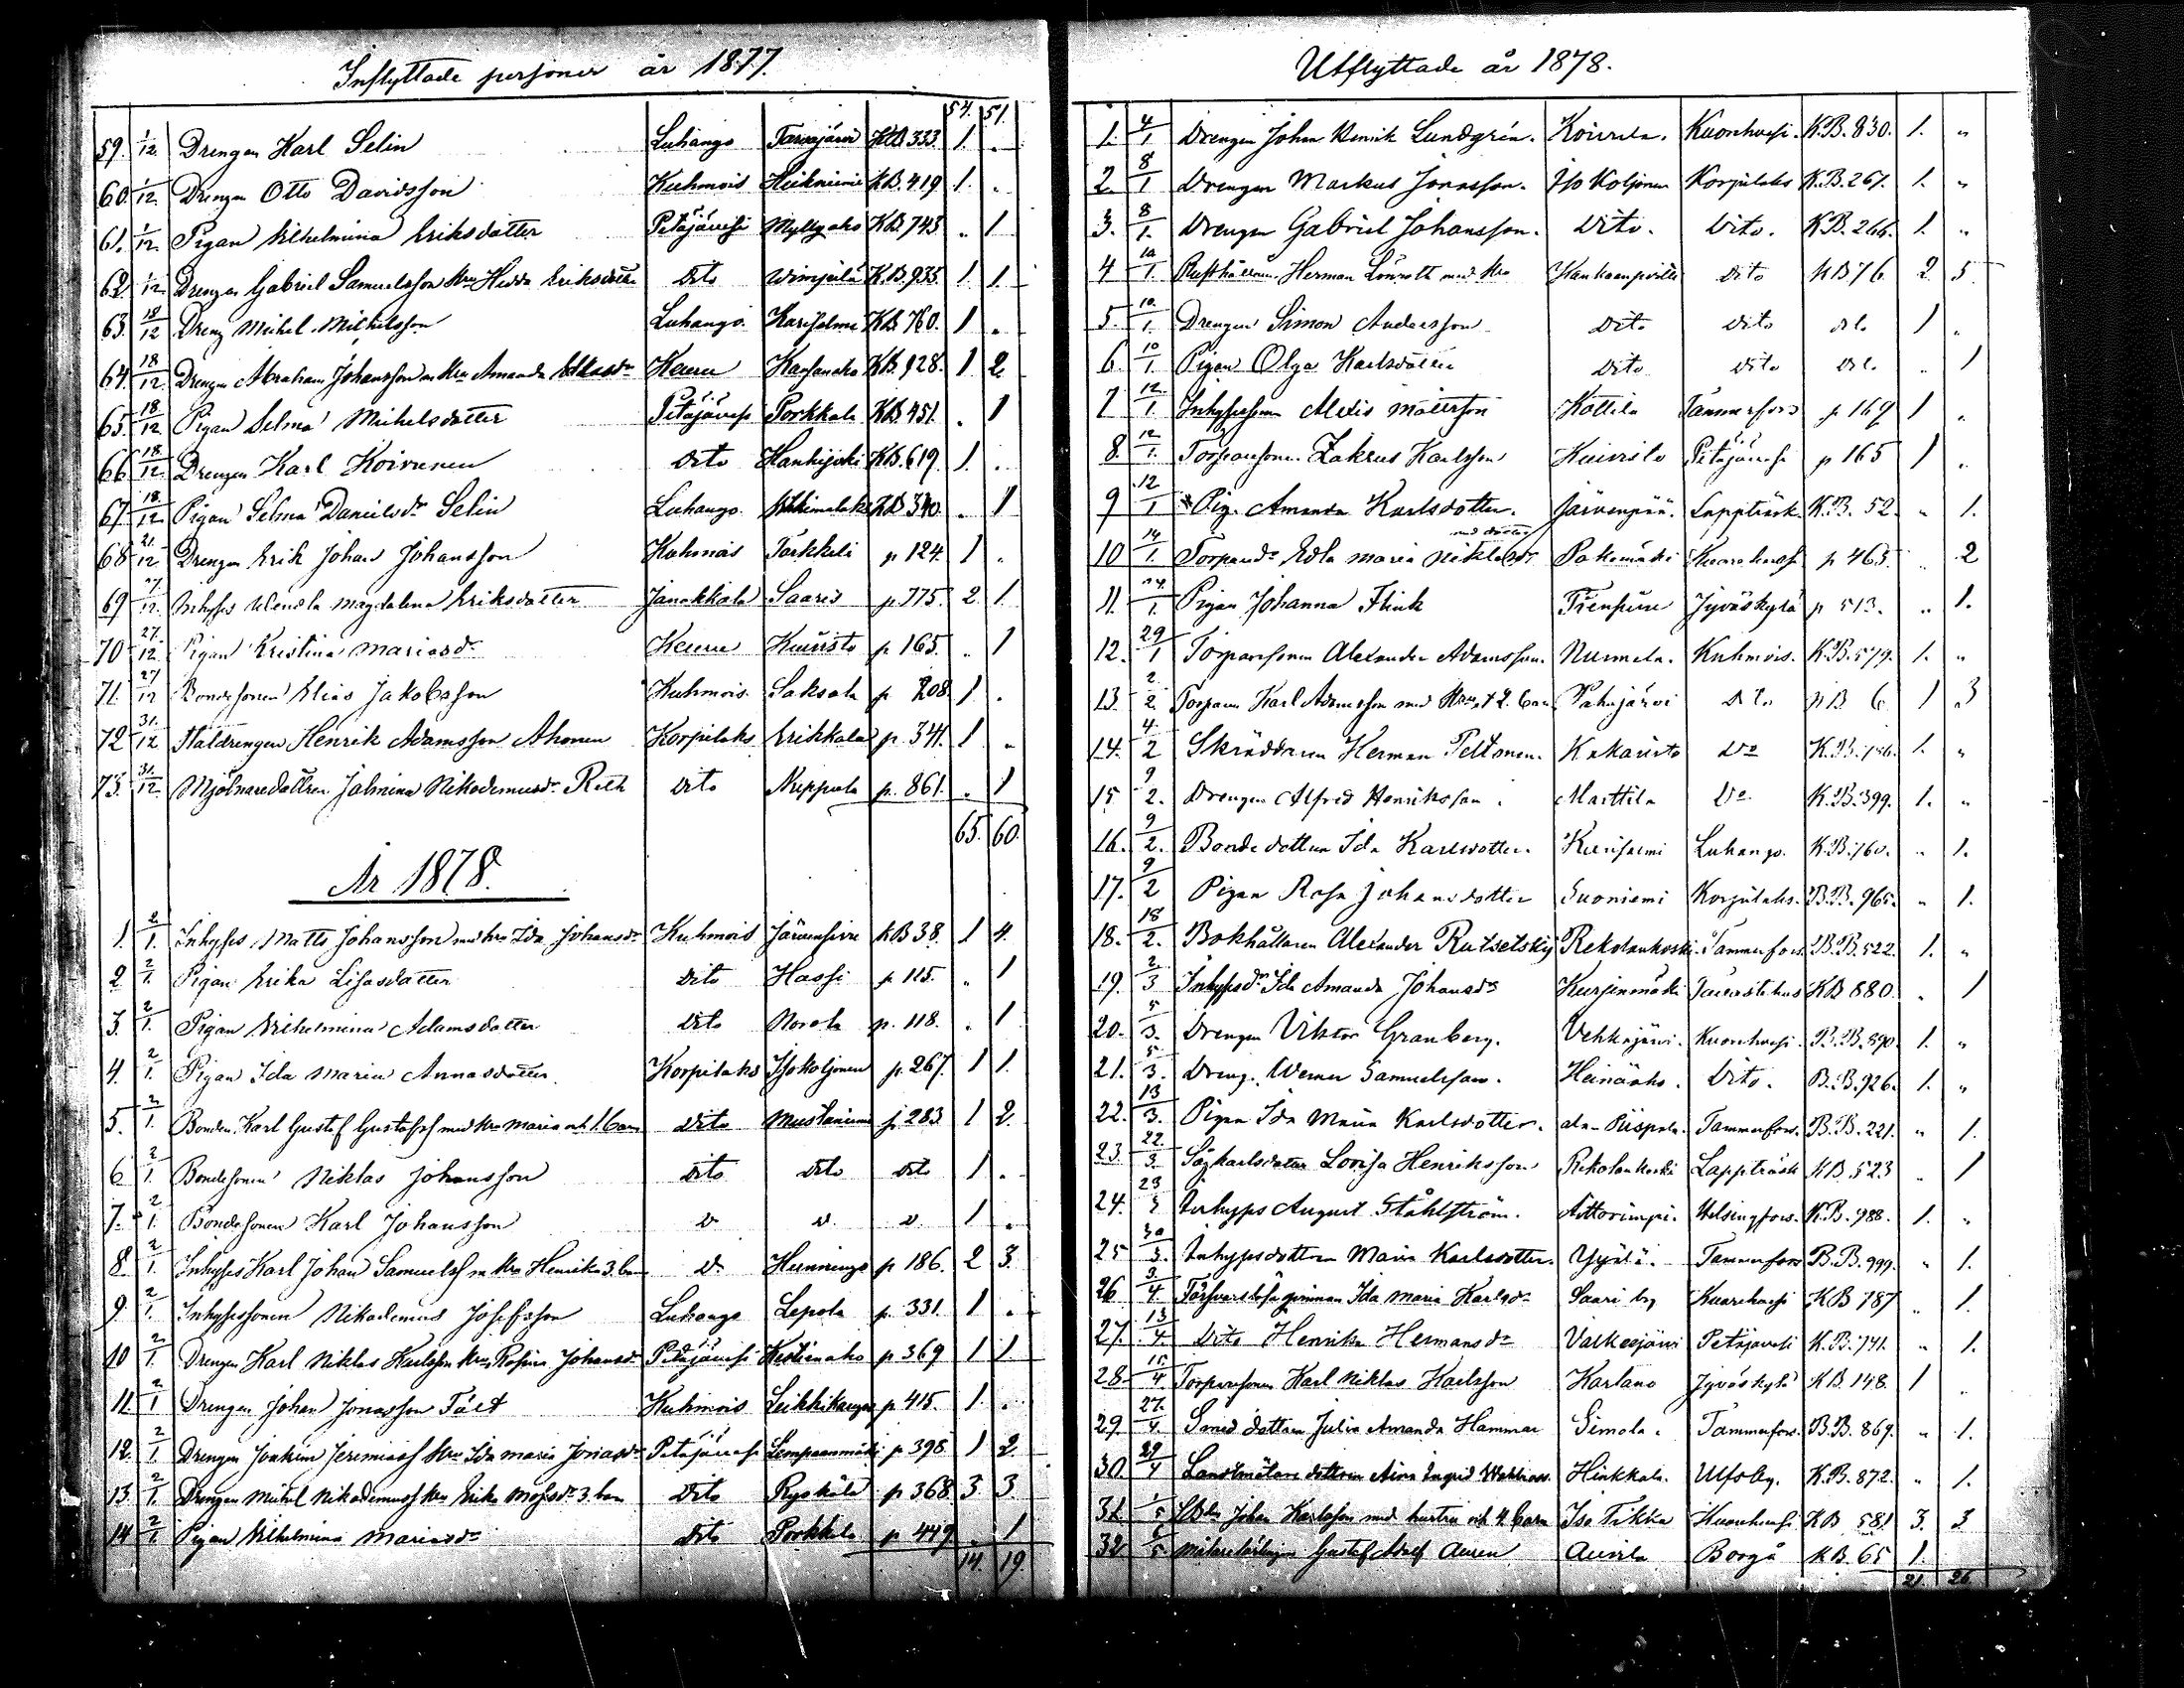 Inflyttade personer år 1877.
54. 51.
59. 1/12 Drengen Karl Selin Luhango KB 333. 1 „
60. 1/12. Drengen Otto Davidsson Kuhmois KB. 419 1. „
61. 1/12. Pigan Wilhelmina Eriksdotter Petäjävesi Myllyaho KB 743 „ 1
62 1/12. Drengen Gabriel Samuelsson Hru Hedda Eriksdotter dito K.B. 935. 1. 1.
63. 18/12 Dreng Mikel Mikelsson Luhango. Karisalmi KB 760. 1 „
64. 18/12. Drengen Abraham Johansson m Hru Amanda Keuru Kansanaho KB 928. 1 2.
65. 18/12 Pigan Selma Mickelsdotter Petäjävesi Porkkala KB 451. „ 1
66. 18/12. Drengen Karl Koivunen dito Hankijoki KB. 619. 1. „
67. 18/12. Pigan Selma Danielsdr Selin Luhango KB 340. „ 1
68. 21./12. Drengen Erik Johan Johansson Kuhmois Tarkkili p 124. 1 „
69. 27./12. Inhyses Magdalena Eriksdotter Janakkala Saaris p. 775. 2. 1.
70. 27./12 Pigan Kristina Mariasdr Keuru Kuiristo p 165. „ 1
71. 27/12 Bondesonen Elias Jakobsson Kuhmois. Saksala p 208. 1 „
72 31./12 Stäldrengen Henrik Adamsson Ahonen Korpilaks Erikkala p. 341. 1 „
73. 31./12. Mjölnaredottren Jalmina Nikodemusdr Reth dito Nippula p. 861. „ 1
65. 60.
År 1878.
1. 2/1. Inhyses Matts Johansson med hru Ida Johansdr Kuhmois KB 38. 1 4.
2 2/1. Pigan Erika Lisasdotter dito Hassi p. 115. „ 1
3. 2/1. Pigan Wilhelmina Adamsdotter dito Norola p. 118. „ 1
4. 2/1. Pigan Ida Maria Annasdotter Korpilaks Isokoljonen p. 267. 1 1.
5. 2/1. Bonden Karl Gustaf Gustafss med hru Maria och 1. barn dito Mustaniemi p 283 1 2.
6 2/1. Bondesonen Niklas Johansson dito dito dito 1 „
7. 2/1. Bondesonen Karl Johansson d. d. d. 1 „
8. 2/1. Inhyses Karl Johan Samuelss m hru Henrika 3. barn d. p 186. 2 3.
9. 2/1. Inhysessonen Nikodemus Josefsson Luhango Lepola p. 331. 1 „
10 2/1. Drengen Karl Niklas Karlsson hru Rosina Johansdr Petäjävesi p 369 1 1
11. 2/1 Drengen Johan Jonasson Fält Kuhmois Leikkikangas p 415. 1. „
12. 2/1. Drengen Joakim Jeremiass hru Ida Maria Jonasdr Petäjävesi p. 398 1 2.
13. 2/1. Drengen Mikel Nikodemuss hru Erika 3. barn dito Ryskälä p 368 3. 3.
14 2/1. Pigan Wilhelmina Mariasdr dito Porkkala p 449 „ 1
14. 19.
Utflyttade år 1878.
1. 4/1 Drengen Johan Henrik Lundgrén. Koivula. Kuorehvesi. K.B. 830. 1. „
2. 8/1 Drengen Markus Jonasson. Iso Koljonen Korpilaks K.B. 267. 1. „
3. 8/1. Drengen Gabriel Johansson. Dito. Dito. K.B. 266. 1. „
4 10/1. Rusthållaren Herman Lönroth med hru Kankaanpää dito KB 76. 2. 5.
5. 10./1. Drengen Simon Andersson dito dito do 1 „
6. 10/1. Pigan Olga Karlsdotter dito dito do. „ 1
7 12./1. Inhysessonen Alexis Mattsson Kottila Tammerfors p 169 1 „
8. 12/1. Torparesonen Zakrus Karlsson Kuiristo Petäjävesi p 165 1 „
9 12/1 Pig. Amanda Karlsdotter. Järvenpää. Lappträsk. K.B. 52. „ 1.
med dotter
10 14/1. Torparedr Edla Maria Niklasdr Pakemäki Kuorehvesi p 463. „ 2
11. 14./1. Pigan Johanna Flink Jyväskylä p 513. „ 1.
12. 29/1 Torparesonen Alexander Adamsson. Nurmela. Kuhmois. K.B. 579. 1. „
13. 2./2. Torparen Karl Adamsson med Hru & 2. barn Pahajärvi do KB 6. 1 3
14. 4./2 Skräddaren Herman Peltonen. Kakaristo do K.B. 786. 1. „
15 9/2. Drengen Alfred Henriksson. Marttila do K.B. 399. 1. „
16. 9/2. Bondedottren Ida Karlsdotter. Karisalmi Luhango. K.B. 760. „ 1.
17. 9/2 Pigan Rosa Johansdotter Suoniemi Korpilaks. B.B. 965. „ 1.
18. 18/2. Bokhållaren Alexander Rutsetskij Rekolankoski. Tammerfors. B.B. 522. 1. „
19. 2./3 Inhysdr Ida Amanda Johansdr Kurjenmäki Tavastehus KB 880. „ 1
20. 5/3. Drengen Viktor Granberg. Vehkajärvi. Kuorehvesi. B.B. 890. 1. „
21. 5/3. Dreng. Werner Samuelsson. Heinäaho. Dito. B.B. 926. 1. „
22. 13/3. Pigan Ida Maria Karlsdotter. ala-Piispala. Tammerfors. B.B. 221. „ 1.
23. 22./3. Sågkarlsdotter Lovisa Henriksson Rekolankoski Lappträsk KB 523 „ 1
24. 23/3 Inhyses August Ståhlström. Helsingfors. K.B. 988. 1. „
25 30/3. Inhysesdottren Maria Karlsdotter. Yijälä. Tammerfors B.B. 999. „ 1.
26 3./4 Försvarslösa qvinnan Ida Maria Karlsdr Saari by Kuorehvesi KB 787 „ 1.
27. 13/4 Dito Henrika Hermansdr Valkeajärvi Petäjävesi K.B. 741. „ 1.
28. 15./4. Torparesonen Karl Niklas Karlsson Karlano Jyväskylä KB. 148. 1 „
29. 27./4 Smed dottren Julia Amanda Hammar Simola. Tammerfors. B.B. 869. „ 1.
30. 29/4 Landtmätare dottren Aina Ingrid Hinkkala. Ulfsby. K.B. 872. „ 1.
31. 1/5 Johan Karlsson med hustru och 4. barn Iso Tikka Kuorehvesi KB 581. 3. 3
32 6/5 Målarelärlingen Gustaf Adolf Auren Auvila Borgå KB. 65 1.
21. 26.